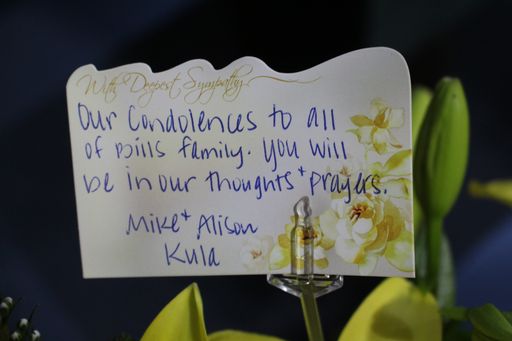 With Deepest Sympathy
Our Condolences to all
of Bills family. You will
be in our thoughts + prayers.
Mike + Alison
Kula